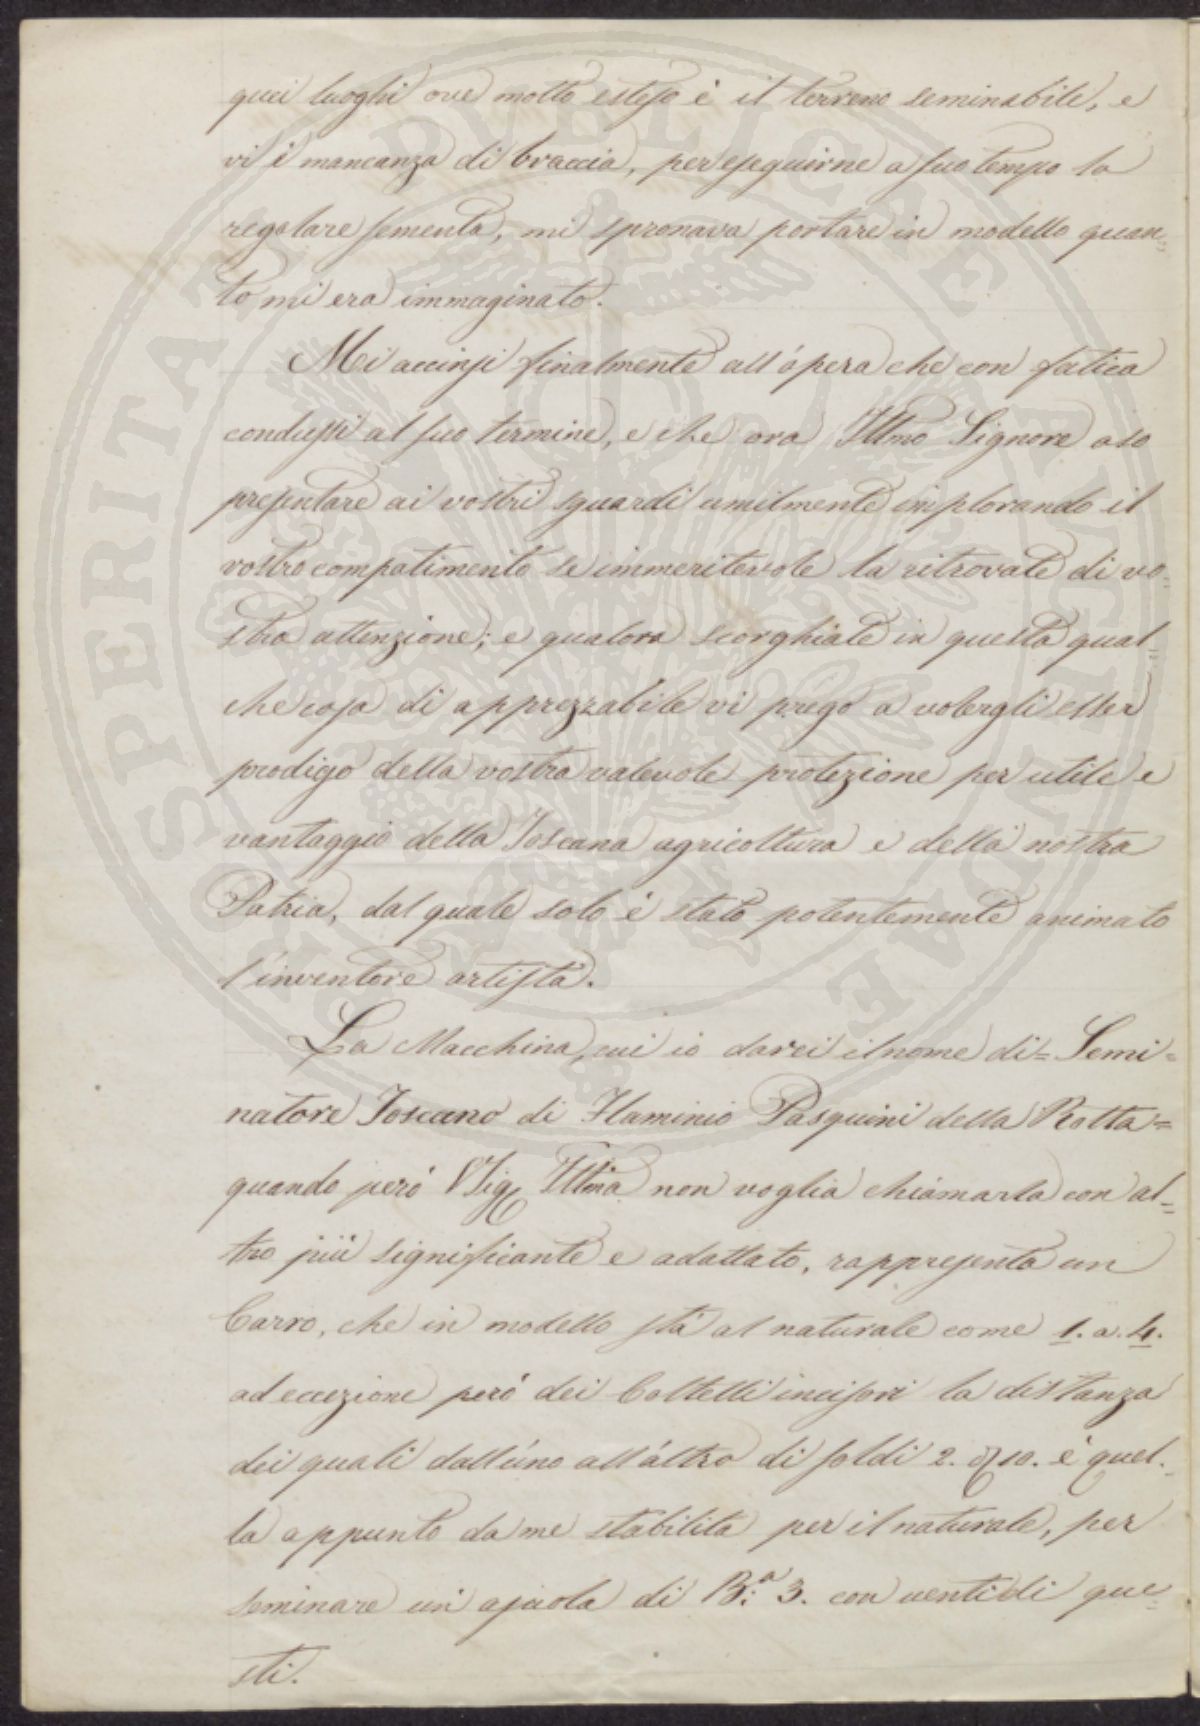 quei luoghi ove molto esteso è il terreno seminabile, e
vi è mancanza di braccia, per eseguirne a suo tempo la
regolare sementa, mi spronava portare in modello quan=
to mi era immaginato.
Mi accinsi finalmente all'ópera che con fatica
condussi al suo termine, e che ora Illmo Signore oso
presentare ai vostri sguardi umilmente implorando il
vostro compatimento se immeritevole la ritrovate di vo=
stra attenzione; e qualora scorghiate in questa qual=
che cosa di apprezzabile vi prego a volergli esser
prodigo della vostra valevole protezione per utile e
vantaggio della Toscana agricoltura e della nostra
Patria, dal quale solo è stato potentemente animato
l'inventore artista.
La Macchina, cui io darei il nome di= Semi=
natore Toscano di Flaminio Pasquini della Rotta=
quando peró VSig. Illma non voglia chiamarla con al=
tro più significante e adattato, rappresenta un
Carro, che in modello stà al naturale come 1. a. 4.
ad eccezione peró dei Coltelli incisori la distanza
dei quali dall'úno all'áltro di soldi 2. 10. è quel=
la appunto da me stabilita per il naturale, per
seminare un' ajuola di B.a 3. con venti di que=
sti.
SOSPERITATI PUBLICAE AUGENDAE